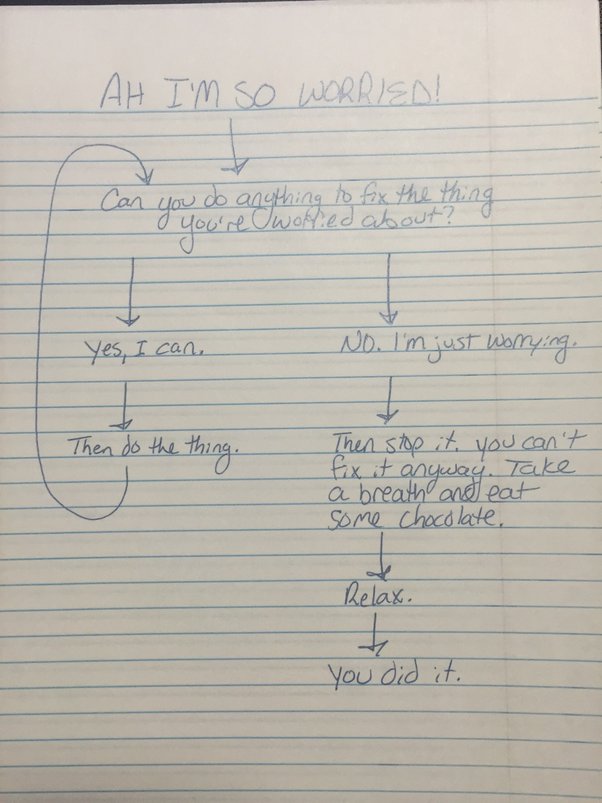 AH I'M SO WORRIED!
Can you do anything to fix the thing
you're worried about?
Yes, I can.
No. I'm just worrying.
Then do the thing.
Then stop it. you can't
fix it anyway. Take
a breath and eat
some chocolate.
Relax.
You did it.